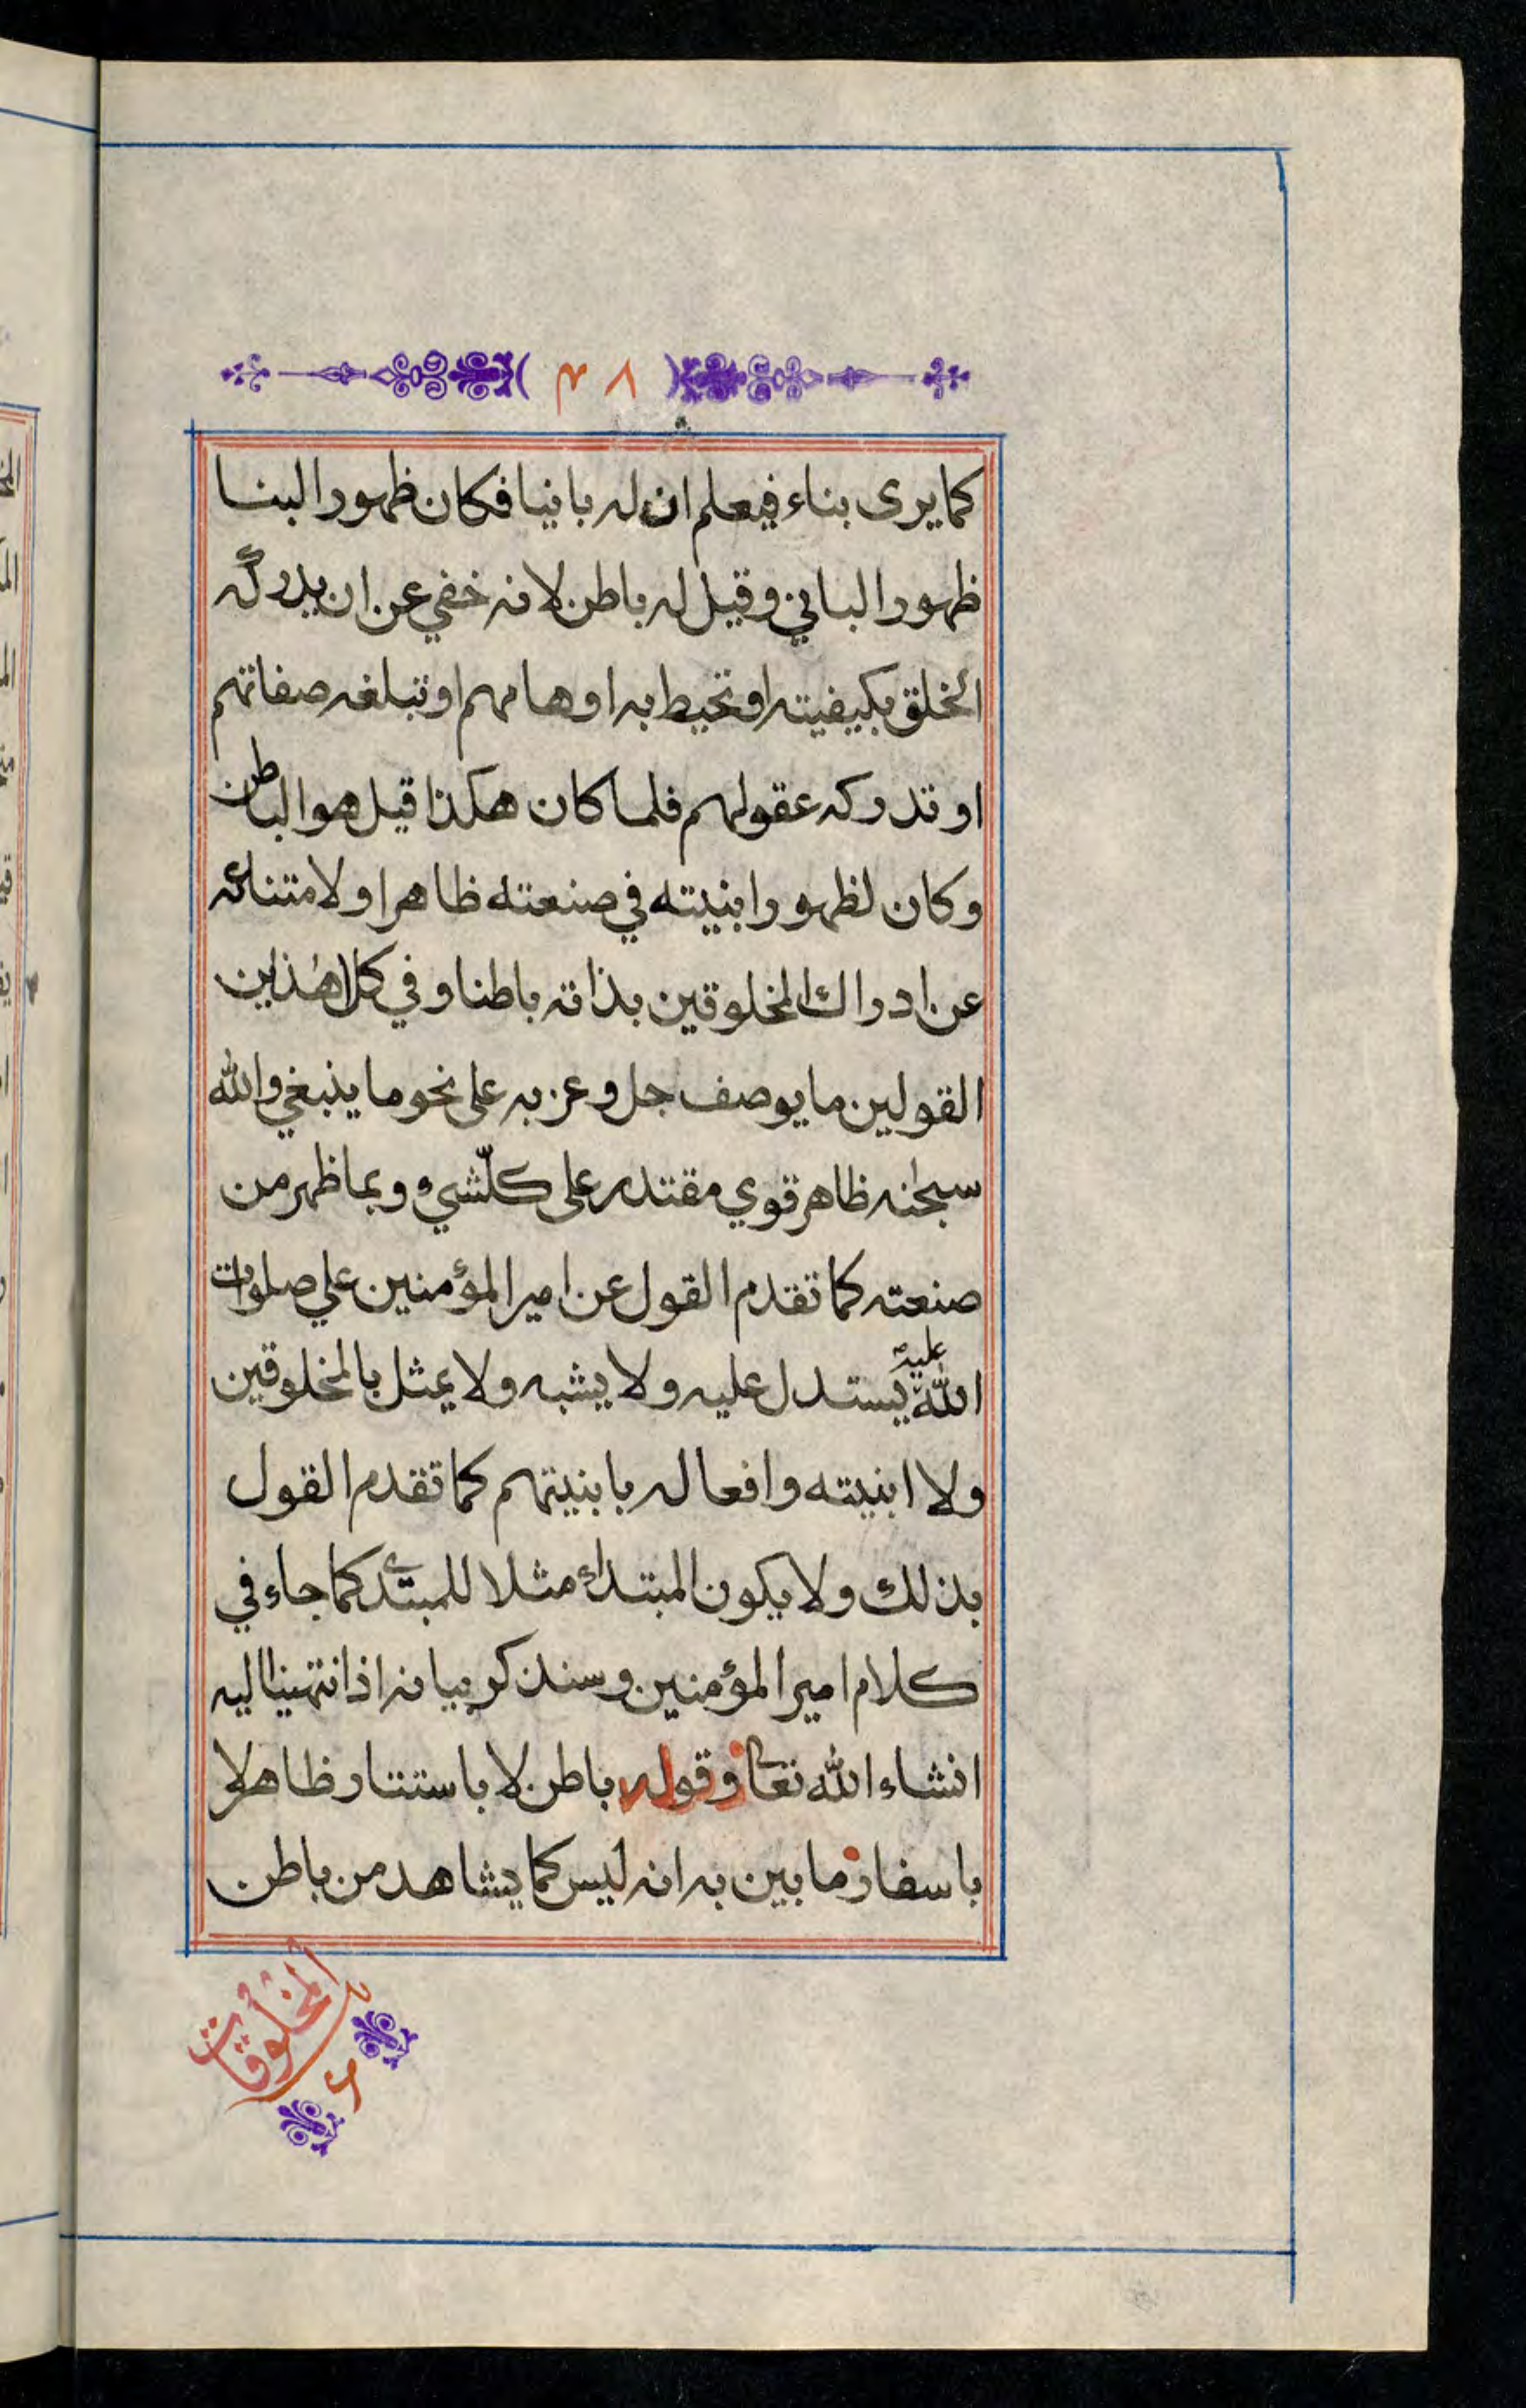 ٣٨
كما يرى بناء فيعلم ان له بانيا فكان ظهور البنا
ظهور الباني وقيل له باطن لانه خفي عن ان يدركه
الخلق بكيفيته او تحيط به اوهامهم او تبلغه صفاتهم
او تدركه عقولهم فلما كان هكذا قيل هو الباطن
وكان لظهور ابنيته في صنعته ظاهرا ولامتناعه
عن ادراك المخلوقين بذاته باطنا وفي كلا هذين
القولين ما يوصف جل وعز به على نحو ما ينبغي والله
سبحنه ظاهر قوي مقتدر على كلّ شيء وبما ظهر من
صنعته كما تقدم القول عن امير المؤمنين علي صلوات
الله عليه يستدل عليه ولا يشبه ولا يمثل بالمخلوقين
ولا ابنيته وافعاله بابنيتهم كما تقدم القول
بذلك ولا يكون المبتداء مثلا للمبتدئ كما جاء في
كلام امير المؤمنين وسنذكر بيانه اذا انتهينا اليه
انشاء الله تعالى وقوله باطن لا باستتار ظاهر لا
باسفار ما بين به انه ليس كما يشاهد من باطن
المخلوقات